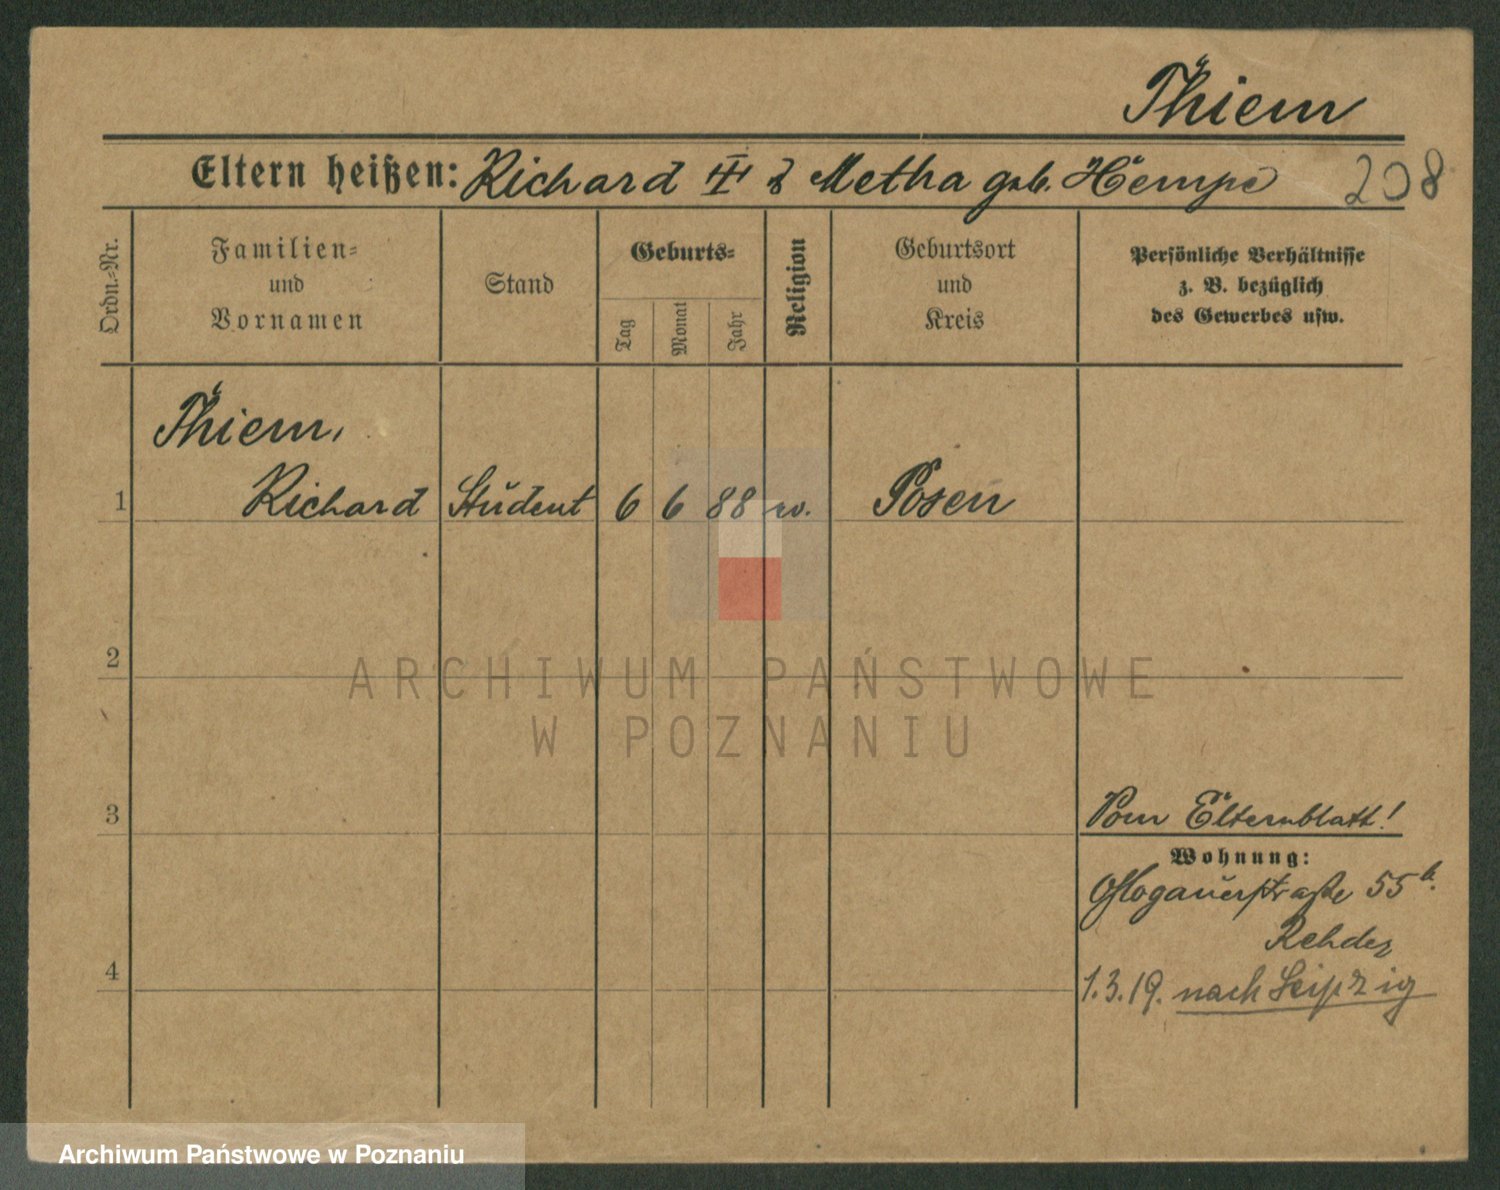 Thiem
Eltern heißen: Richard III & Metha geb. Hempe 208
Ordn.=Nr.
Familien=
und
Vornamen
Stand
Geburts=
Tag
Monat
Jahr
Religion
Geburtsort
und
Kreis
Persönliche Verhältnisse
z. B. bezüglich
des Gewerbes usw.
Thiem,
1 Richard Student 6 6 88 ev. Posen
2
ARCHIWUM PAŃSTWOWE
W POZNANIU
3 Vom Elternblatt!
Wohnung:
Glogauerstraße 55b.
Rehder
4 1.3.19. nach Leipzig
Archiwum Państwowe w Poznaniu